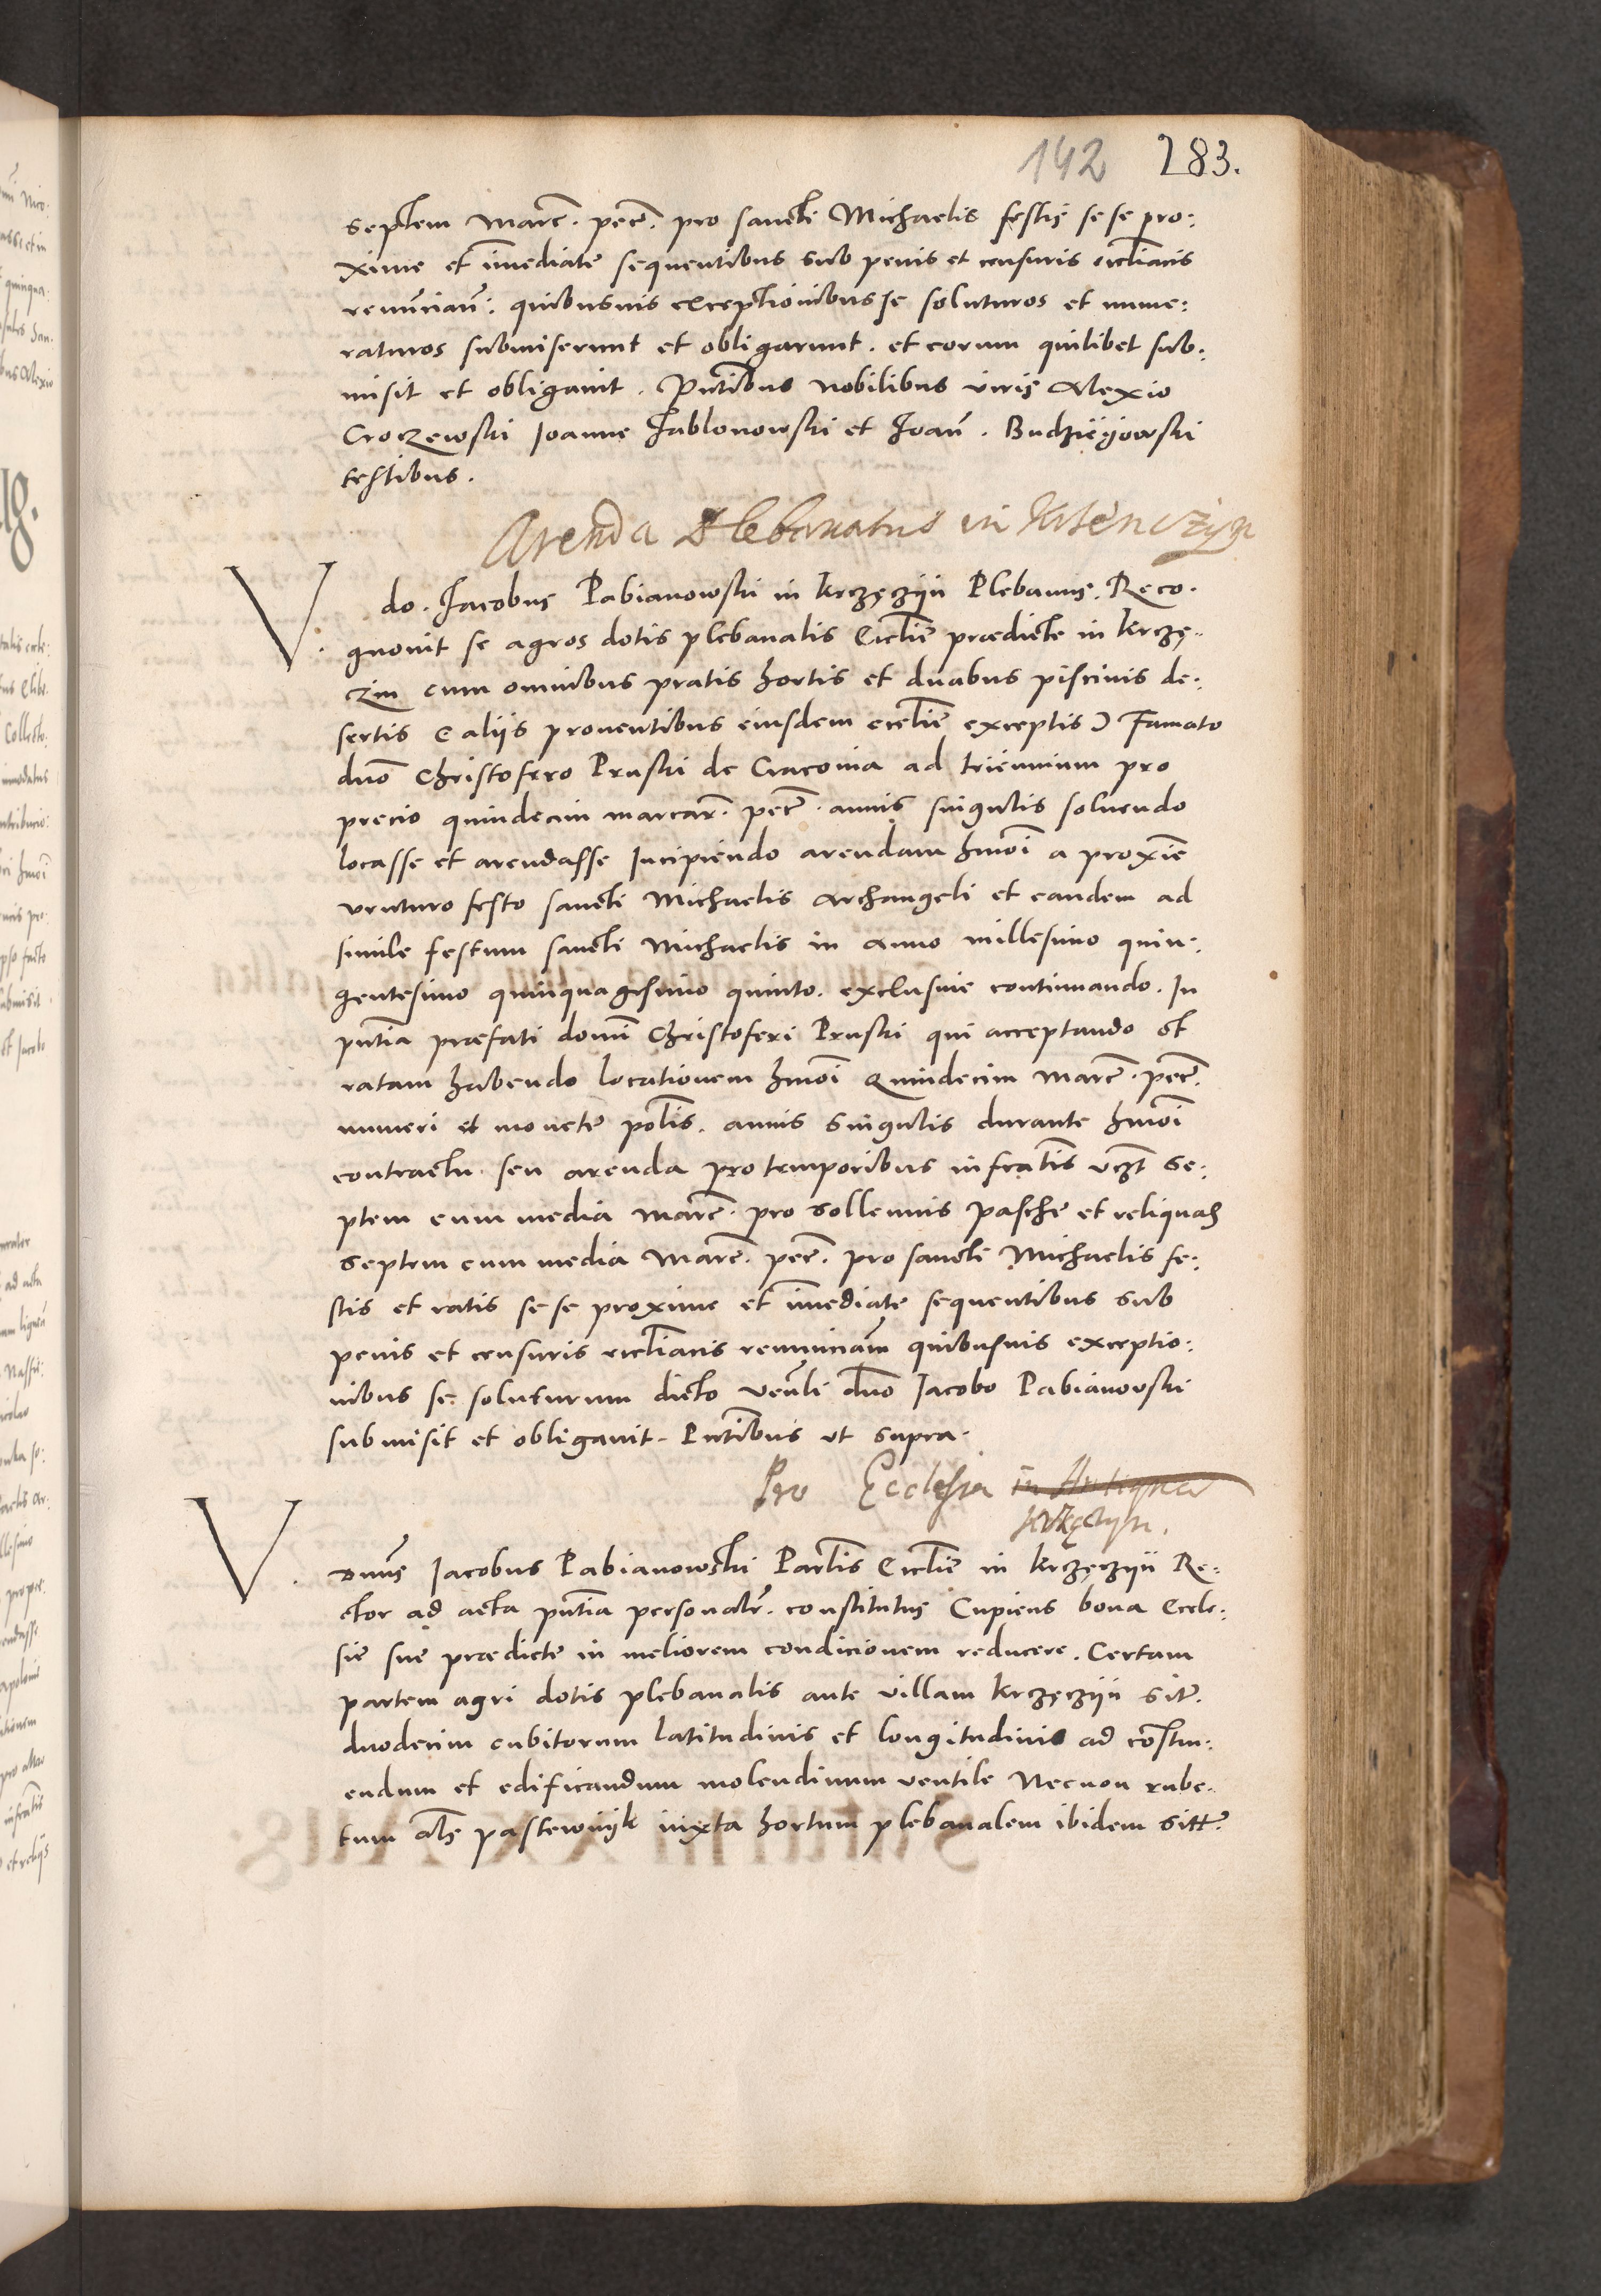 142 283.
septem marc̄. pec̄. pro sancti Michaelis festis se se pro:
xime et im̄ediate sequentibus sub penis et censuris ecclīacis
renūnciañ: quibusuis exceptionibus se soluturos et nume:
raturos submiserunt et obligarunt. et eorum quilibet sub:
misit et obligauit. Pn̄tibus nobilibus viris Alexio
Croczewski Joanne Jablonowski et Joañ. Budziejowski
testibus.
Arenda Plebanatus in Krzenczyn
V. do. Jacobus Pabianowski in Krzęczyn Plebanus. Reco.
gnouit se agros dotis plebanalis Ecclīe prædicte in Krzę:
czin cum omnibus pratis hortis et duabus piscinis de:
sertis (aliis prouentibus eiusdem ecclīe exceptis) Famato
dño Christofero Pruski de Cracouia ad triennium pro
precio quindecim marcar̄. pec̄. annis singulis soluendo
locasse et arendasse Incipiendo arendam hm̄oi a proxīe
venturo festo sancti Michaelis Archangeli et eandem ad
simile festum sancti Michaelis in Anno millesimo quin:
gentesimo quinquagesimo quinto. exclusiue continuando. In
pn̄tia præfati domī Christoferi Pruski qui acceptando et
ratam habendo locationem hm̄oi Quindecim marc̄. pec̄.
numeri et monete pol̄is. annis singulis durante hm̄oi
contractu seu arenda pro temporibus infratis vcz̄t se:
ptem cum media marc̄. pro sollennis pasche et reliquas
septem cum media marc̄. pec̄. pro sancti Michaelis fe:
stis et ratis se se proxime et im̄ediate sequentibus sub
penis et censuris ecclīacis renunciañ quibusuis exceptio:
nibus se soluturum dicto ven̄li dño Jacobo Pabianowski
submisit et obligauit. Pn̄tibus ut supra.
Pro Ecclesia in Antiqua
Krzęczyn.
V. dn̄us Jacobus Pabianowski Par̄lis Ecclīe in Krzęczyn Re:
ctor ad acta pn̄tia personalr̄. constitutus Cupiens bona Eccle:
sie sue prædicte in meliorem condicionem reducere. Certam
partem agri dotis plebanalis ante villam Krzęczyn sit̄.
duodecim cubitorum latitudinis et longitudinis ad constru:
endum et edificandum molendinum ventile Necnon rube:
tum al̄s pastewnyk iuxta hortum plebanalem ibidem sitt̄.